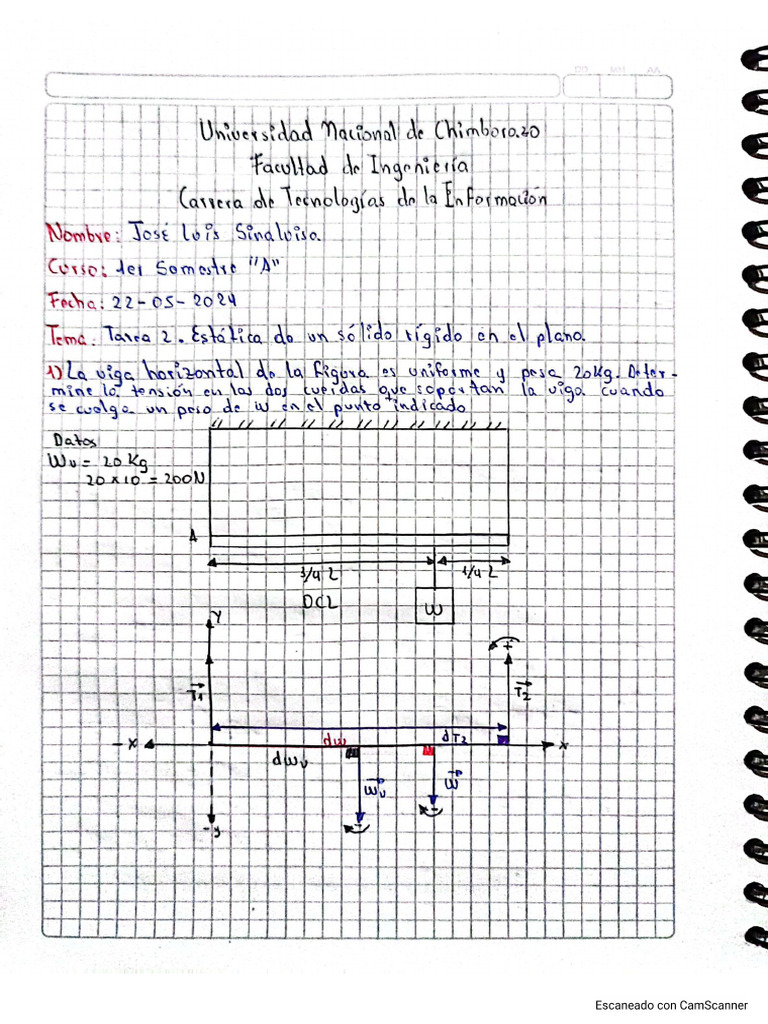 DD MM AA
Universidad Nacional de Chimborazo
Facultad de Ingeniería
Carrera de Tecnologías de la Información
Nombre: José Luis Sinaluisa.
Curso: 1er Semestre "A"
Fecha: 22-05-2024
Tema: Tarea 2. Estática de un sólido rígido en el plano.
1) La viga horizontal de la figura es uniforme y pesa 20kg. Deter-
mine la tensión en las dos cuerdas que soportan la viga cuando
se cuelga un peso de w en el punto indicado
Datos
Wv = 20 Kg
20 x 10 = 200N
A
3/4 L
1/4 L
DCL
W
Y
+
T1
T2
-x
dw
dT2
x
dwv
Wv
W
-
-
-y
Escaneado con CamScanner